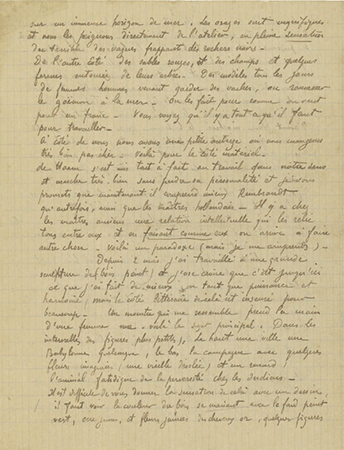 sur un immense horizon de mer. Les orages sont magnifiques
et nous les peignons directement de l'atelier, en pleine sensation
des vagues frappant des rochers noirs.
De l'autre côté des sables rouges, et des champs et quelques
fermes entourées de leurs arbres. Des modèles tous les jours
de femmes hommes venant garder des vaches, ou ramasser
le goëmon à la mer. On les fait poser comme on veut
pour un franc. Vous voyez qu'il y a tout ce qu'il faut
pour travailler.
A côté de nous nous avons une petite auberge où nous mangeons
très bien pas cher. Voilà pour le côté matériel.
de Haan s'est mis tout à fait au travail dans notre sens
et marche très bien sans perdre sa personnalité et pouvons
promets que maintenant il comprend mieux Rembrandt
qu'autrefois, ainsi que les maîtres hollandais. Il y a chez
les maîtres anciens une relation intellectuelle qui les relie
tous entre eux et en faisant comme eux on arrive à faire
autre chose. Voilà un paradoxe (mais je me comprends)
Depuis 2 mois j'ai travaillé à une grande
sculpture (de bois peint) et j'ose croire que c'est jusqu'ici
ce que j'ai fait de mieux en tant que puissance et
harmonie, mais le côté littéraire de cela est insensé pour
beaucoup. Un monstre qui me ressemble prend la main
d'une femme nue, voilà le sujet principal. Dans les
intervalles des figures plus petites, le haut une ville une
Babylone quelconque, le bas la campagne avec quelques
fleurs imaginées (une vieille désolée) et un renard
l'animal fatidique de la perversité chez les Indiens.
Il est difficile de vous donner la sensation de cela avec un dessin,
il faut voir la couleur du bois se mariant avec le fond peint
vert, ocre jaune, et fleurs jaunes des cheveux or, quelques figures